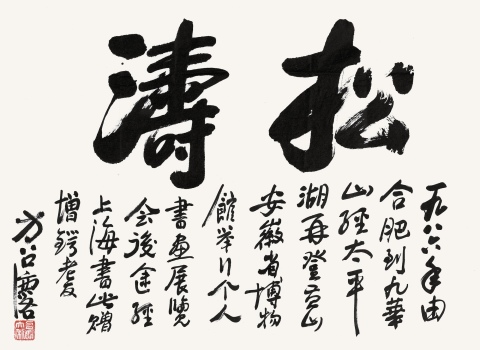 松濤
一九八六年由
合肥到九華
山經太平
湖再登黃山
安徽省博物
館举行个人
書画展覽
会後途經
上海書此贈
增鍔老友
方召麐